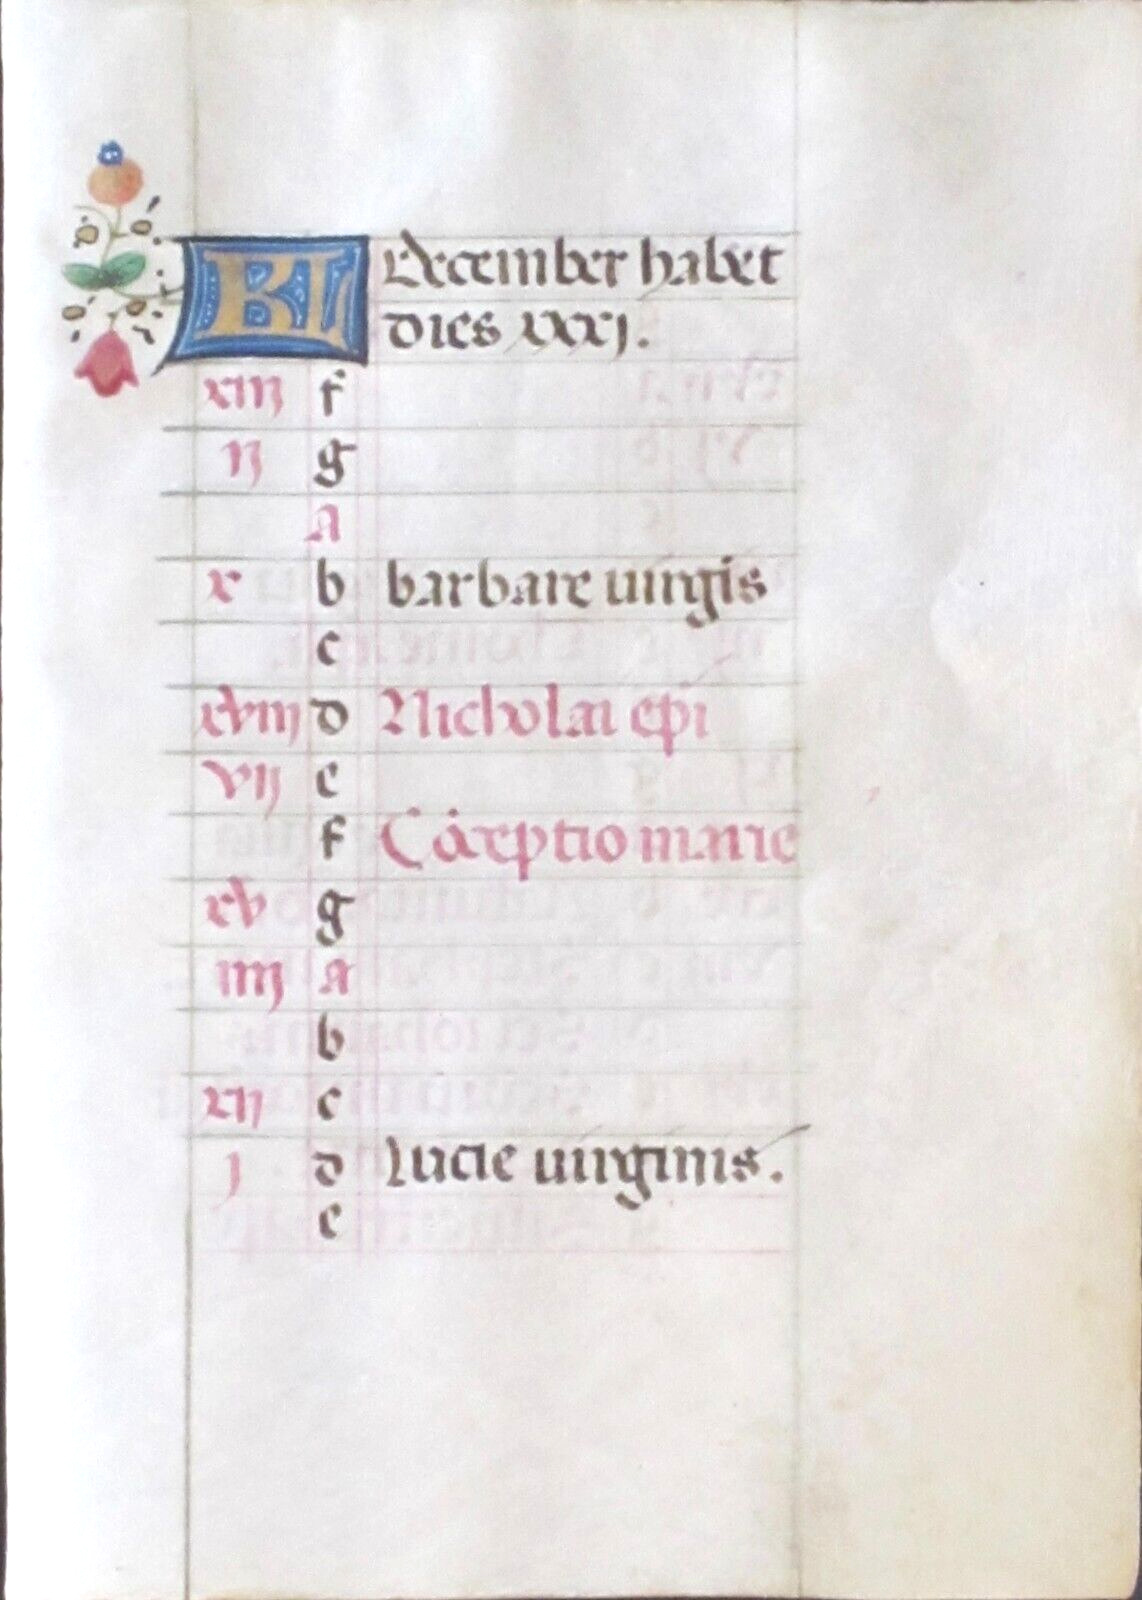 KL December habet
dies xxxj.
xiij f
ij g
A
x b barbare uirgis
c
xviij d Nicholai epi
vij e
f Cõceptio marie
xv g
iiij A
b
xij c
j d Lucie uirginis.
e